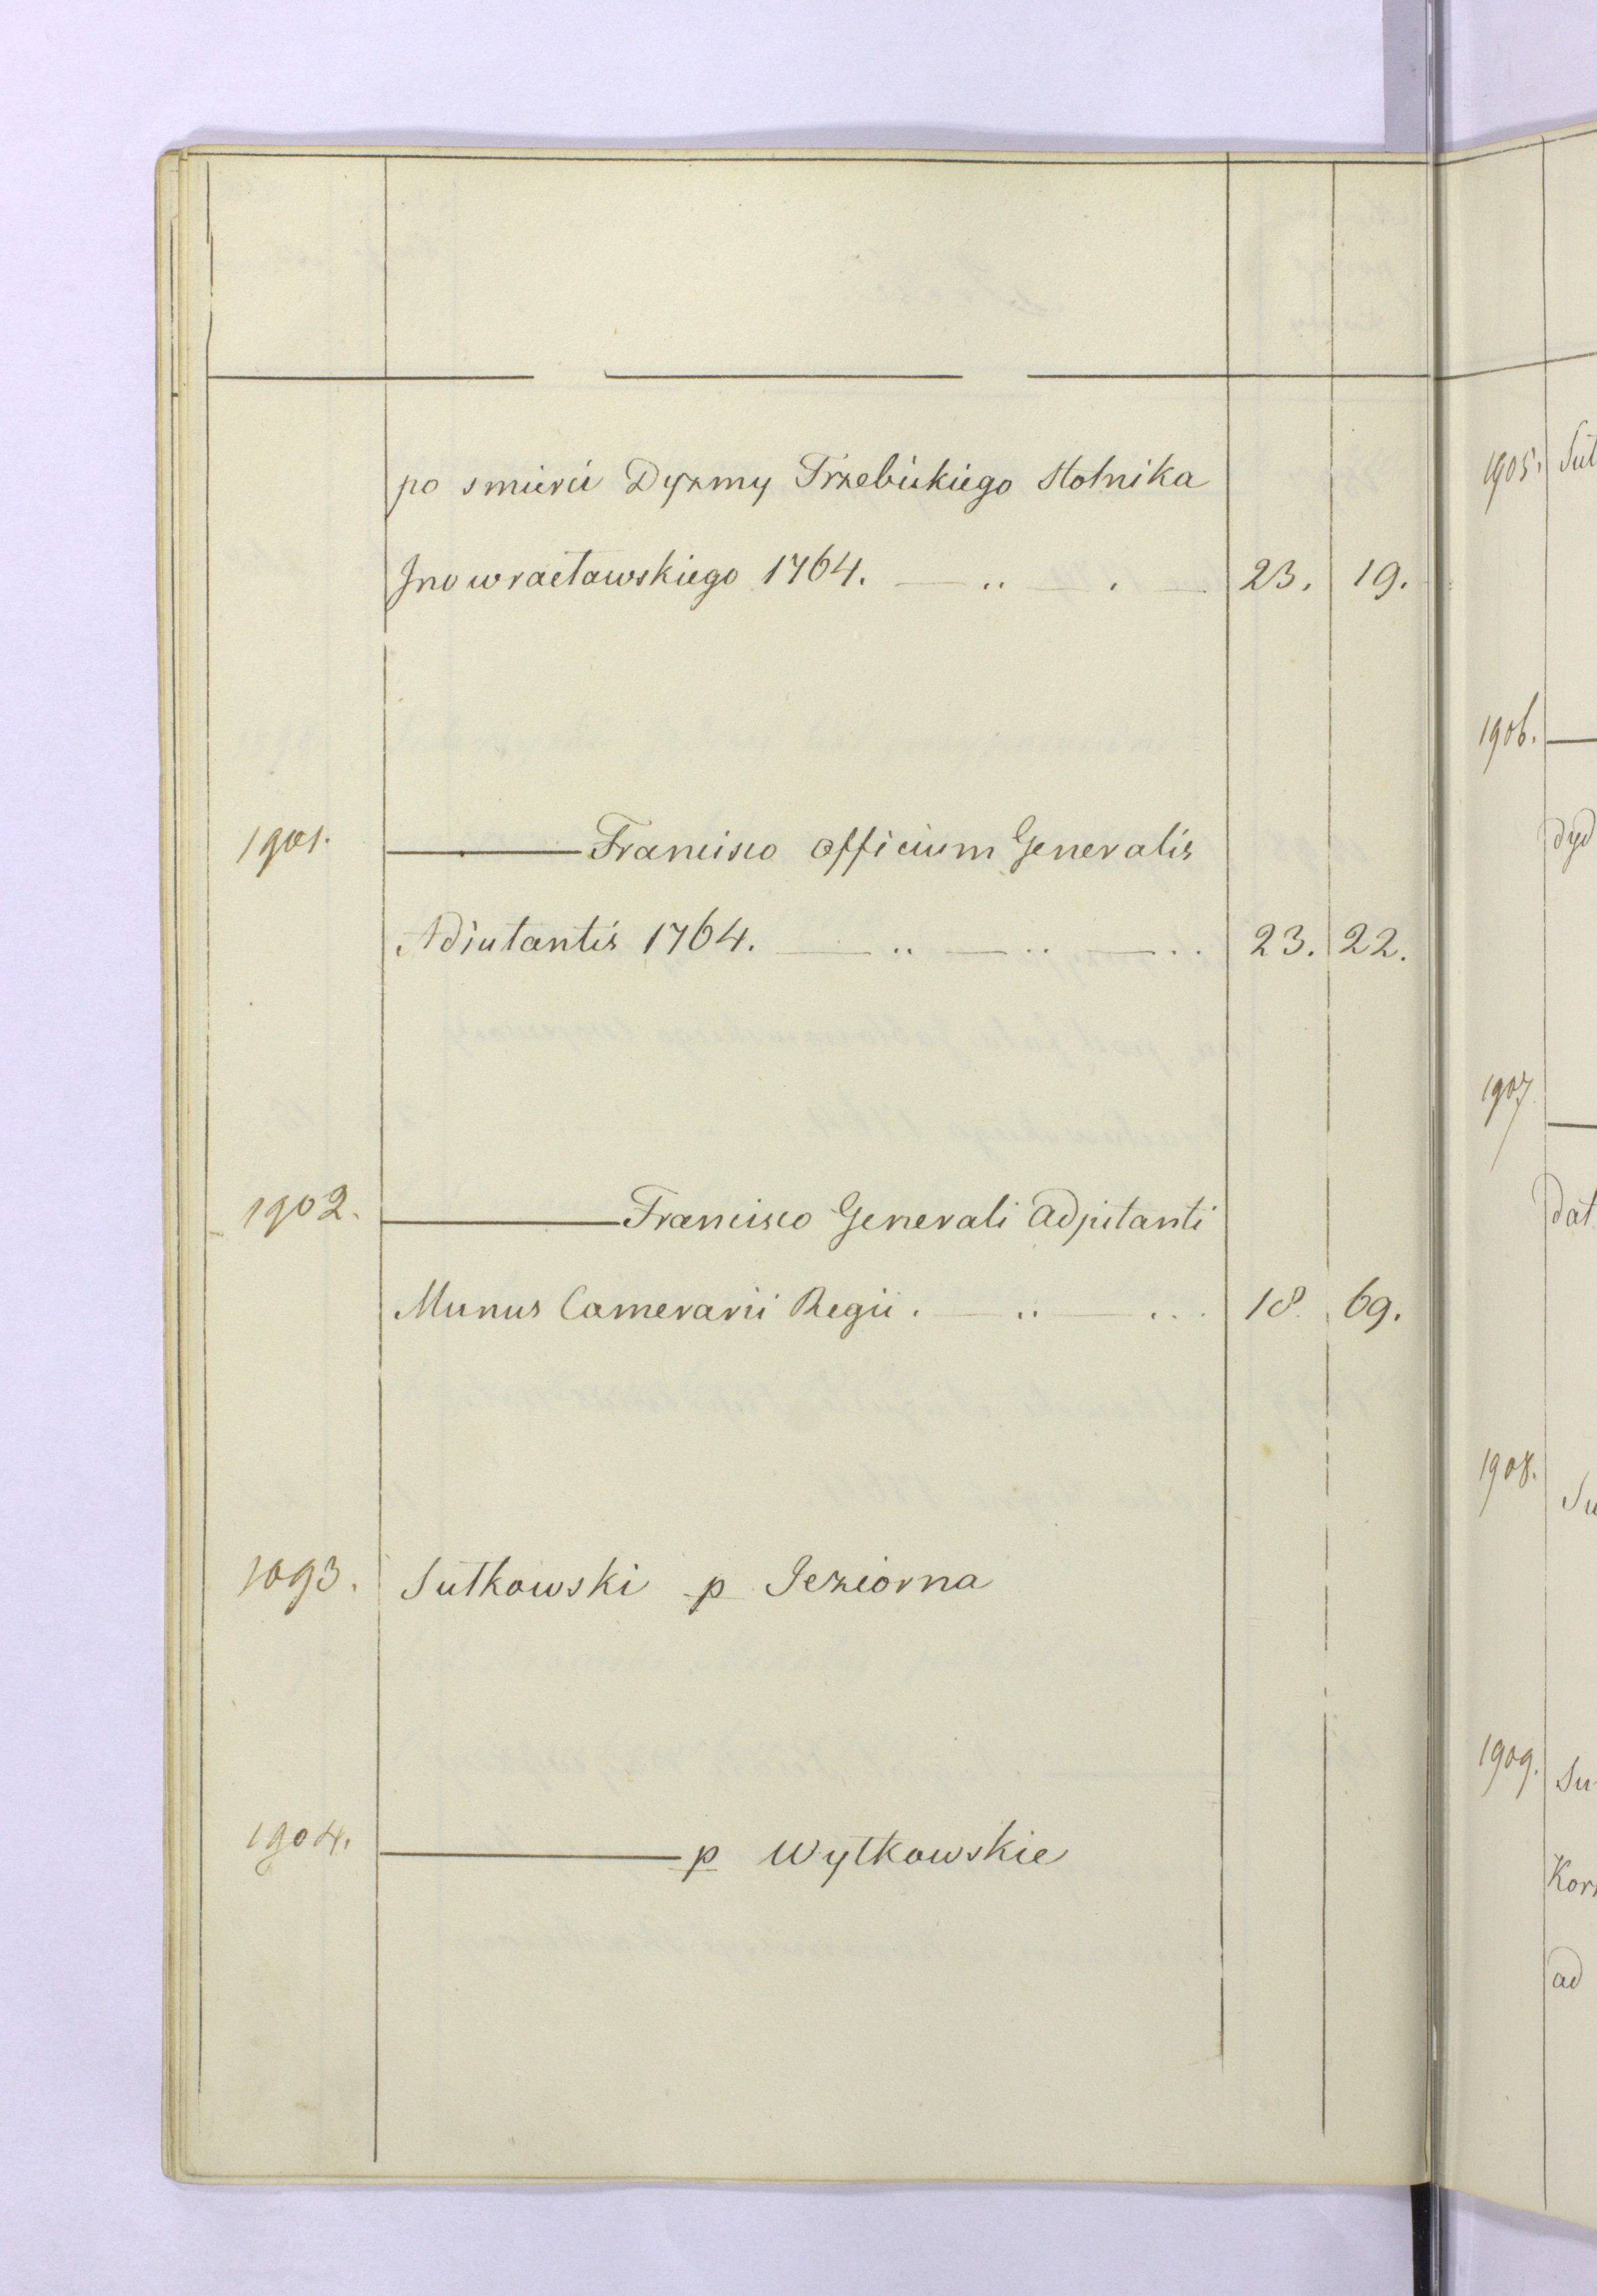 po smierci Dyzmy Trzebickiego Stolnika
Inowracławskiego 1764. — .. — . — 23. 19.
1901. ——— Francisco officium Generalis
Adiutantis 1764. — .. — .. — .. 23. 22.
1902. ——— Francisco Generali Adjutanti
Munus Camerarii Regii. — .. — ... 18. 69.
1093. Sułkowski p Jeziorna
1904. ——— p Wytkowskie
1905. Suł
1906. —
dyd
1907 —
dat
1908. Su
1909. Su
Kor
ad